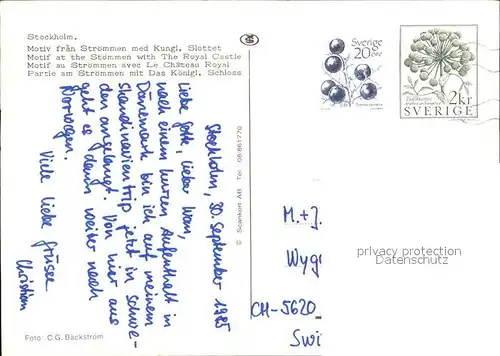 Stockholm.
Motiv från Strömmen med Kungl. Slottet
Motif at the Stømmen with The Royal Castle
Motif au Strømmen avec Le Château Royal
Partie am Strømmen mit Das Königl. Schloss
Stockholm, 30. September 1985
Liebe Gotte, lieber Hans,
nach einem kurzen Aufenthalt in
Dänemark bin ich auf meinem
Skandinavientrip jetzt in Schwe-
den angelangt. Von hier aus
geht es dann weiter nach
Norwegen.
Viele liebe Grüsse
Christian
© Scankort AB Tel. 08/861770
Foto: C G. Bäckström
Sverige
20 öre
2 kr
SVERIGE
M.+J.
Wyg
CH-5620
Swi
privacy protection
Datenschutz